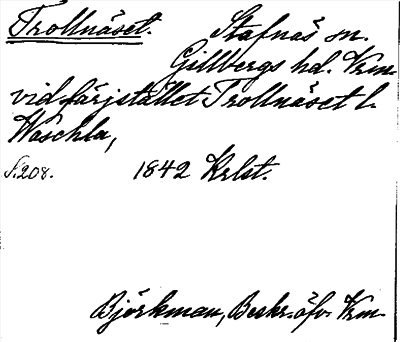 Trollnäset. Stafnäs sn.
Gillbergs hd. Vrm.
vid färjstället Trollnäset l.
Waschla,
S. 208. 1842 Krlst.
Björkman, Beskr. öfv. Vrm.